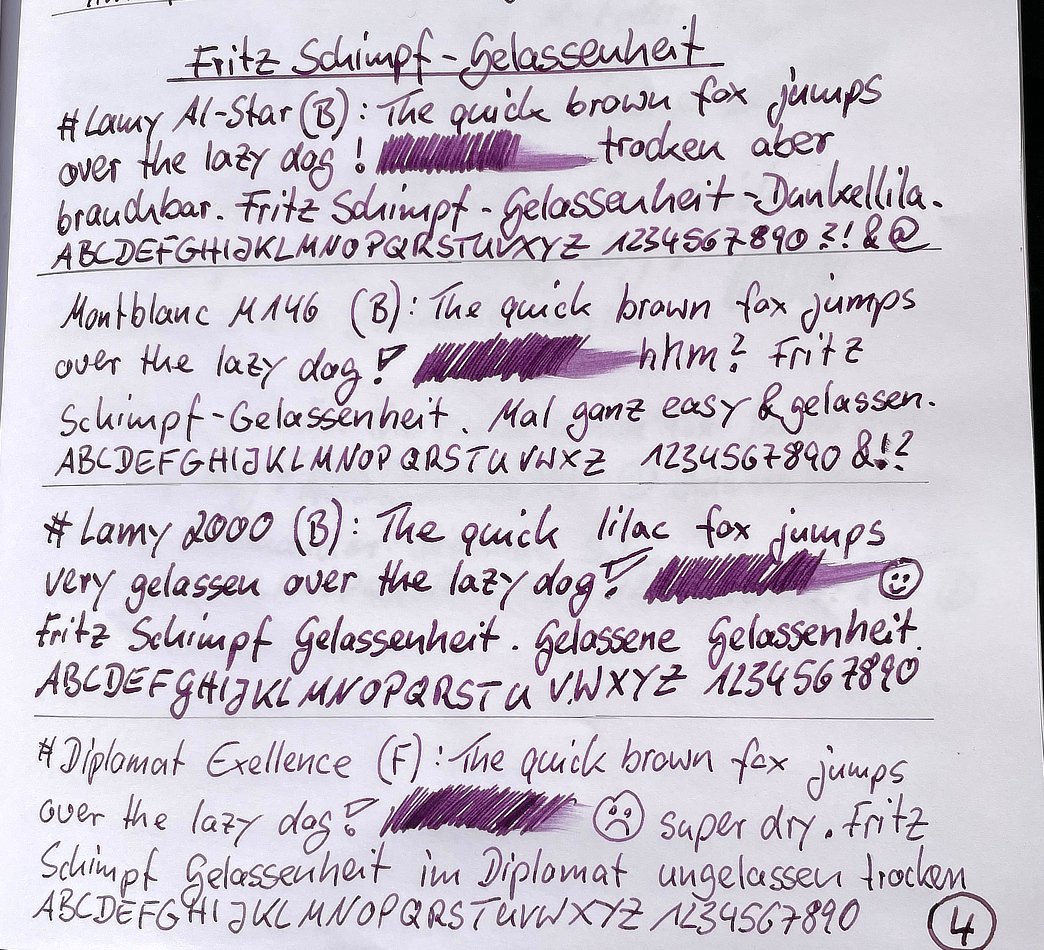 Fritz Schimpf - Gelassenheit
#Lamy Al-Star (B): The quick brown fox jumps
over the lazy dog! trocken aber
brauchbar. Fritz Schimpf - Gelassenheit - Dunkellila.
ABCDEFGHIJKLMNOPQRSTUVXYZ 1234567890?!&@
Montblanc M146 (B): The quick brown fox jumps
over the lazy dog! hhm? Fritz
Schimpf-Gelassenheit. Mal ganz easy & gelassen.
ABCDEFGHIJKLMNOPQRSTUVWXZ 1234567890&!?
#Lamy 2000 (B): The quick lilac fox jumps
very gelassen over the lazy dog!
Fritz Schimpf Gelassenheit. Gelassene Gelassenheit.
ABCDEFGHIJKLMNOPQRSTUVWXYZ 1234567890
#Diplomat Exellence (F): The quick brown fox jumps
over the lazy dog! super dry. Fritz
Schimpf Gelassenheit im Diplomat ungelassen trocken
ABCDEFGHIJKLMNOPQRSTUVWXYZ 1234567890
4